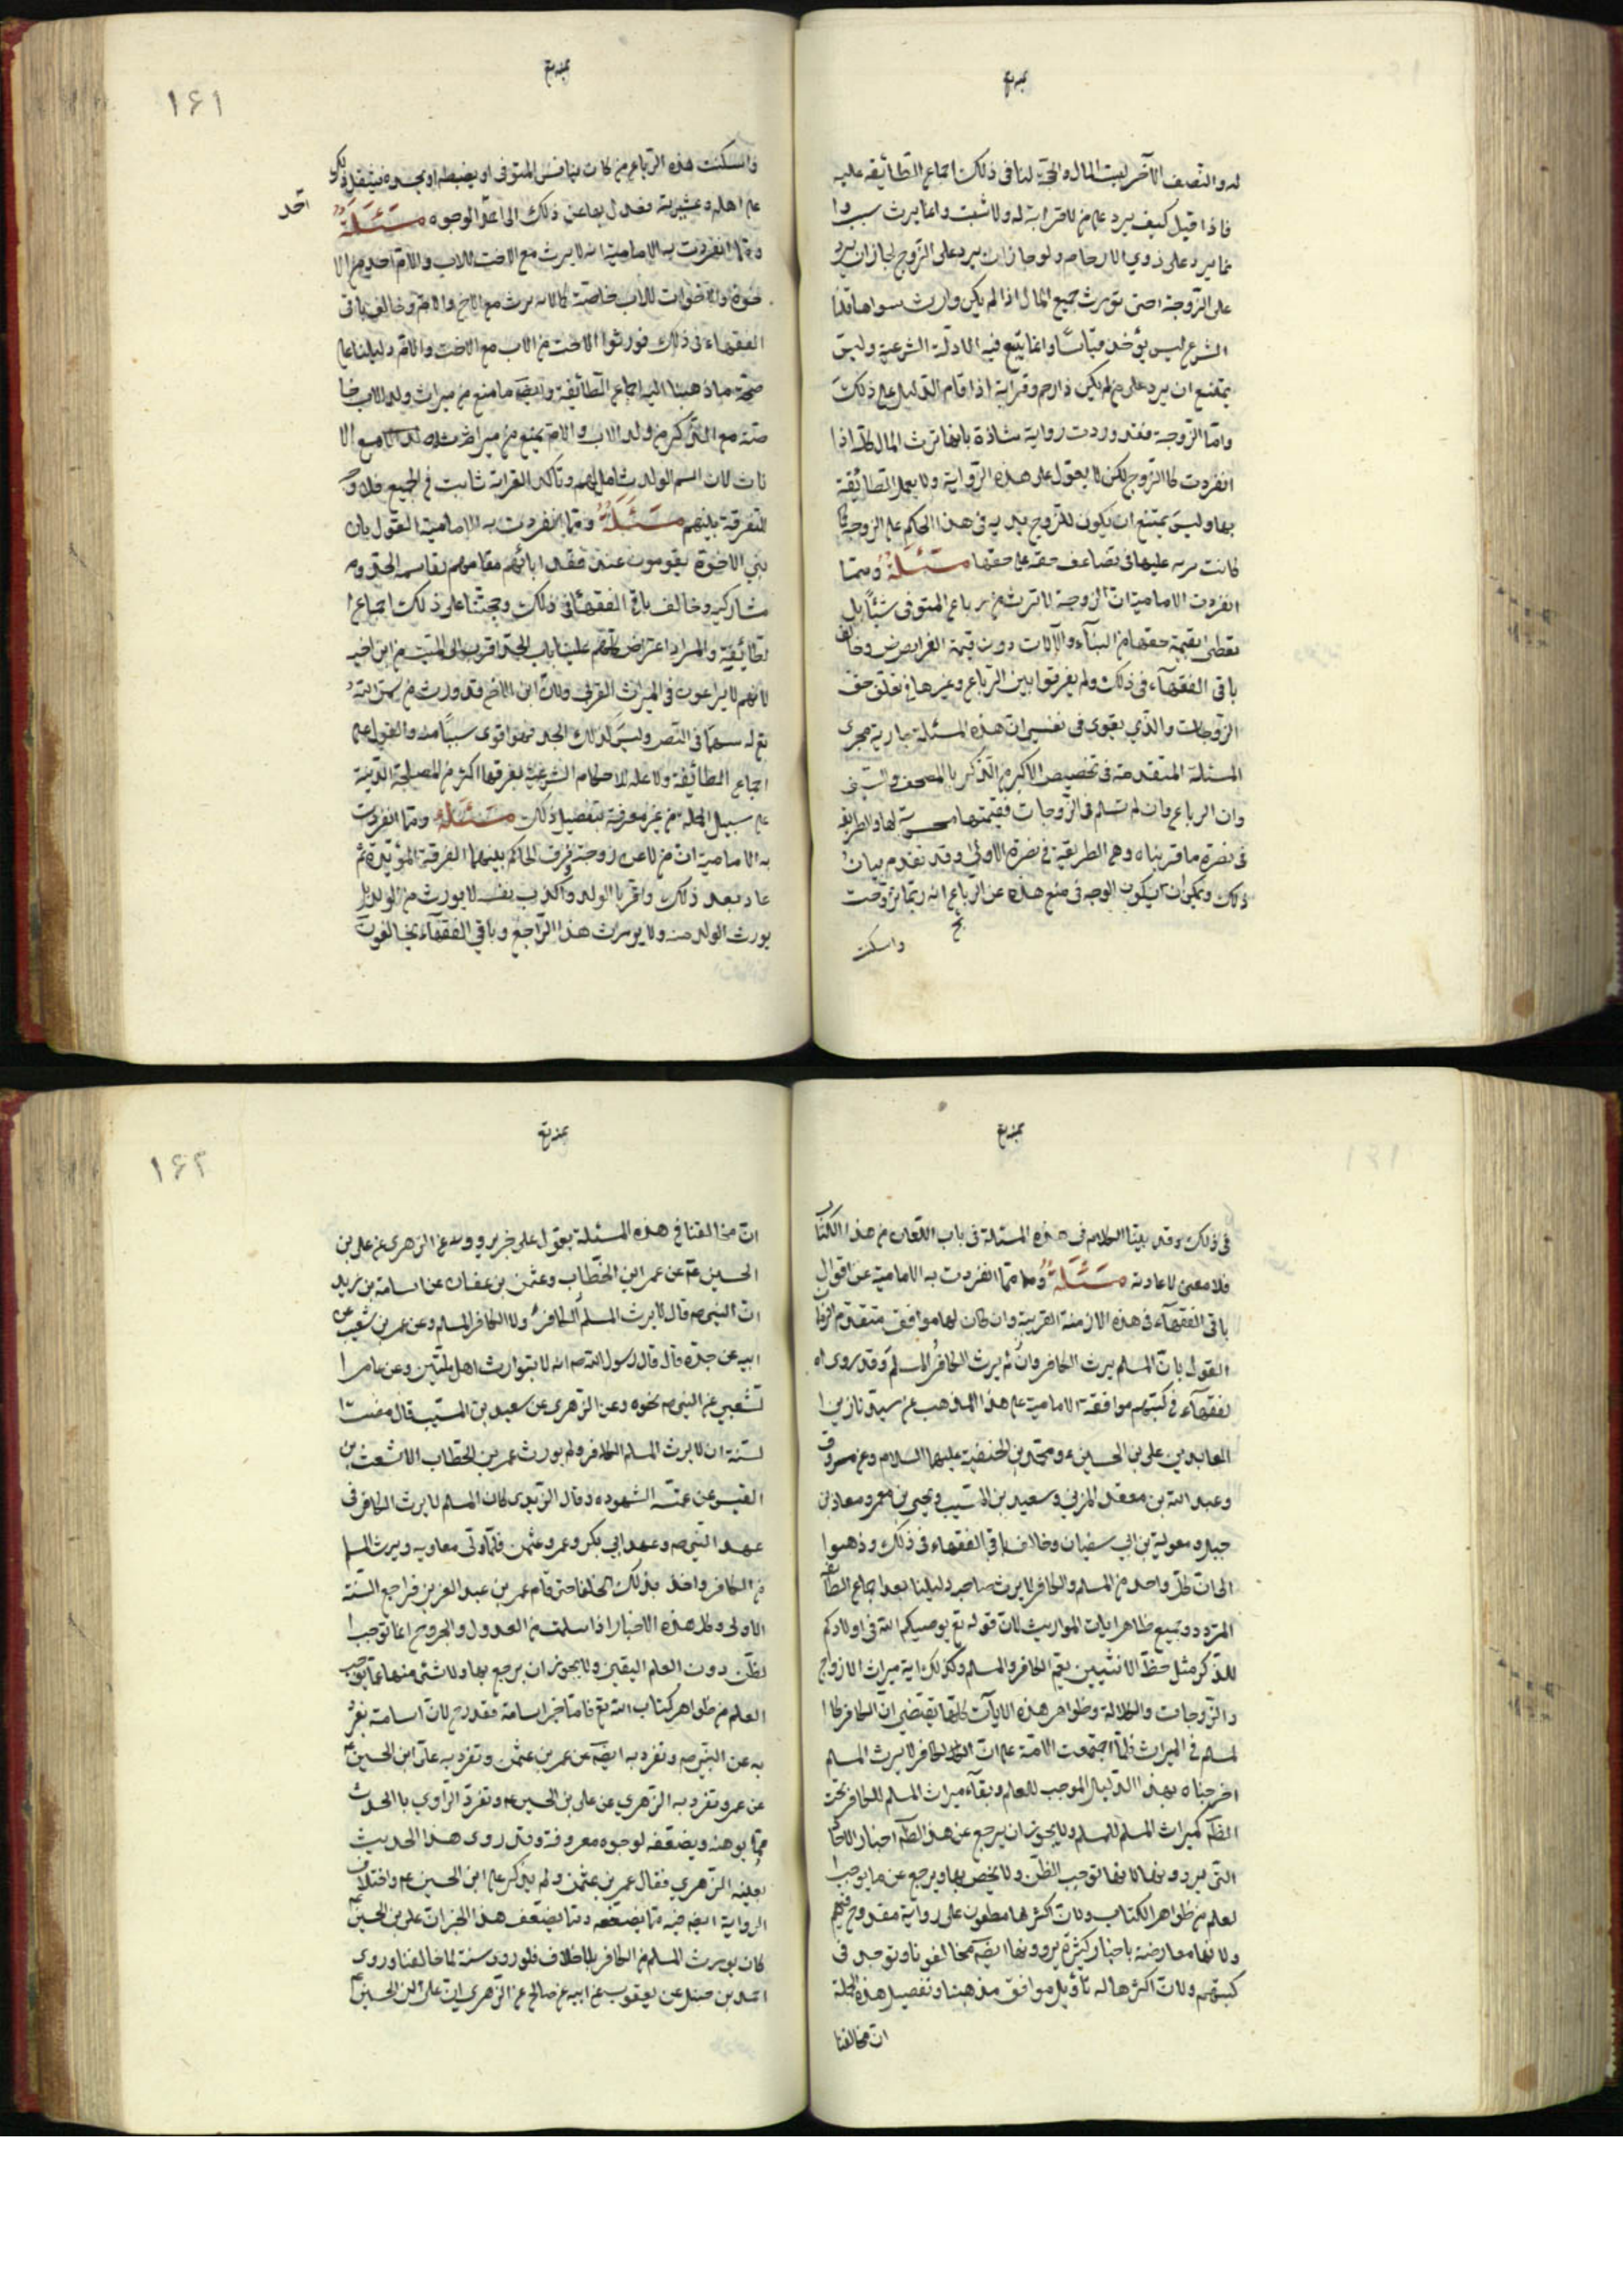 له والنصف الآخر لبيت المال والحجة لنا في ذلك اجماع الطائفة عليه
فاذا قيل كيف يرد على من لا قرابة له ولا نسب وانما يرث بسبب وا
نما يرد على ذوي الارحام ولو جاز ان يرد على الزوج لجاز ان يرد
على الزوجة حتى تورث جميع المال اذا لم يكن وارث سواها قلنا
الشرع ليس يؤخذ قياسًا وانما يتبع فيه الادلة الشرعية وليس
يمتنع ان يرد على من لم يكن ذا رحم وقرابة اذا قام الدليل على ذلك
واما الزوجة فقد وردت رواية شاذة بانها ترث المال كله اذا
انفردت كالزوج لكن لا يعول على هذه الرواية ولا يعمل الطائفة
بها وليس يمتنع ان يكون للزوج مزية في هذا الحكم على الزوجة كما
كانت مزية عليها في تضاعف حقه على حقها مسئلة ومما
انفردت الامامية ان الزوجة لا ترث من رباع المتوفى شيئًا بل
تعطى بقيمة حقها من البناء والآلات دون قيمة العراص وخالف
باقي الفقهاء في ذلك ولم يفرقوا بين الرباع وغيرها في تعلق حق
الزوجات والذي يقوى في نفسي ان هذه المسئلة جارية مجرى
المسئلة المتقدمة في تخصيص الاكبر من الذكر بالمصحف والسيف
وان الرباع وان لم تسلم الى الزوجات فقيمتها محسوبة لها والطريقة
في نصرة ما قربناه وهى الطريقة في نصرة الاولى وقد تقدم بيان
ذلك ويمكن ان يكون الوجه في منع هذه عن الرباع انه ربما تزوجت
واسكنت
١٦١
واسكنت هذه الرباع من كان ينافس المتوفى او يغبطه او يحسده فيثقل ذلك
على اهله وعشيرته فعدل بها عن ذلك الى اعدل الوجوه مسئلة
ومما انفردت به الامامية انه لا يرث مع الاخت للاب والام احد من الا
خوة والاخوات للاب خاصة كما لا يرث مع الاخ والام وخالف باقي
الفقهاء في ذلك فورثوا الاخت من الاب مع الاخت والام دليلنا على
صحة ما ذهبنا اليه اجماع الطائفة وايضًا ما منع من ميراث ولد الاب خا
صة مع الذكر من ولد الاب والام يمنع من ميراث مع الا
ناث لان اسم الولد شاملهم وتأكد القرابة ثابت في الجميع فلا وجه
للتفرقة بينهم مسئلة ومما انفردت به الامامية القول بان
بني الاخوة يقومون عند فقد ابائهم مقامهم بقاسمة الجد وم
شاركيه وخالف باقي الفقهاء في ذلك وحجتنا على ذلك اجماع ا
لطائفة والمراد اعتراض علينا بان الجد اقرب الى الميت من ابن اخيه
لانهم لا يراعون في الميراث القربى ولان ابن الاخ قد ورث من سمى الله
تع له سهمًا في النص وليس كذلك الجد فهو اقوى سببًا منه والمعول على
اجماع الطائفة ولا علة للاحكام الشرعية نعرفها اكثر من المصلحة الدينية
على سبيل الجملة من غير معرفة بتفصيل ذلك مسئلة ومما انفردت
به الامامية ان من لاعن زوجته وفرق الحاكم بينهما الفرقة المؤبدة ثم
عاد بعد ذلك واقر بالولد واكذب نفسه لا يورث من الولد بل
يورث الولد منه ولا يورث هذا الراجع وباقي الفقهاء يخالفون
في ذلك وقد بينا الكلام في هذه المسئلة في باب اللعان من هذا الكتاب
فلا معنى لاعادته مسئلة ومما انفردت به الامامية عن اقوال
باقي الفقهاء في هذه الازمنة القريبة وان كان لها موافق متقدم الزمان
القول بان المسلم يرث الكافر وان لم يرث الكافر المسلم وقد روى ا
لفقهاء في كتبهم موافقة الامامية على هذا المذهب عن سيدنا زين ا
لعابدين علي بن الحسين ع ومحمد بن الحنفية عليهما السلام وعن مسروق
وعبد الله بن معقل المزني وسعيد بن المسيب ويحيى بن يعمر ومعاذ بن
جبل ومعوية بن ابي سفيان وخالف باقي الفقهاء في ذلك وذهبوا
الى ان كل واحد من المسلم والكافر لا يرث صاحبه دليلنا بعد اجماع الطائفة
المتردد جميع ظاهر ايات المواريث لان قوله تع يوصيكم الله في اولادكم
للذكر مثل حظ الانثيين يعم الكافر والمسلم وكذلك اية ميراث الازواج
والزوجات والكلالة وظواهر هذه الايات كلها تقتضي ان الكافر كا
لمسلم في الميراث فلما اجتمعت الامة على ان الكافر لا يرث المسلم
اخرجناه بهذا الدليل الموجب للعلم وبقاء ميراث المسلم للكافر تحت
الظاهر كميراث المسلم للمسلم ولا يجوز ان يرجع عن هذا الظاهر اخبار الاحاد
التي يروونها لانها توجب الظن ولا يخص بها ويرجع عن ما يوجب ا
لعلم من ظواهر الكتاب ولان اكثرها مطعون على رواية مقدوح فيهم
ولانها معارضة باخبار كثيرة يروونها ايضًا مخالفونا وتوجد في
كتبهم ولان اكثرها له تأويل موافق مذهبنا وتفصيل هذه الجملة
ان مخالفنا
١٦٢
ان مخالفنا في هذه المسئلة يعول على خبر يروونه عن الزهري عن علي بن
الحسين ع عن عمر ابن الخطاب وعثمن بن عفان عن اسامة بن زيد
ان النبي ص قال لا يرث المسلم الكافر ولا الكافر المسلم وعن عمر بن شعيب عن
ابيه عن جده قال قال رسول الله ص انه لا يتوارث اهل ملتين وعن عامر ا
لشعبي عن النبي ص نحوه وعن الزهري عن سعيد بن المسيب قال مضت ا
لسنة ان لا يرث المسلم الكافر ولم يورث عمر بن الخطاب الاشعث بن
القيس عن عمته اليهوديه وقال الزهري كان المسلم لا يرث الكافر في
عهد النبي ص وعهد ابي بكر وعمر وعثمن فلما ولى معاويه ويرث المسلم
من الكافر واخذ بذلك الخلفا حتى قام عمر بن عبد العزيز فراجع السنة
الاولى وكل هذه الاخبار اذا سلمت من القدوح والجروح انما توجب ا
لظن دون العلم اليقين ولا يجوز ان يرجع بها ولا شئ منها عما يوجب
العلم من ظواهر كتاب الله تع فاما خبر اسامة فقدح لان اسامة تفرد
به عن النبي ص وتفرد به ايضًا عن عمر بن عثمن وتفرد به علي ابن الحسين ع
عن عمر وتفرد به الزهري عن علي بن الحسين ع وتفرد الراوي بالحديث
مما يوهنه ويضعفه لوجوه معروفة وقد روى هذا الحديث
بعينه الزهري فقال عمر بن عثمن ولم يذكر علي ابن الحسين ع واختلاف
الرواية ايضًا فيه مما يضعفه ومما يضعف هذا الخبر ان علي بن الحسين ع
كان يورث المسلم من الكافر بلا خلاف فلو روى سنة لما خالفنا وروى
احمد بن حنبل عن يعقوب عن ابيه عن صالح عن الزهري ان علي ابن الحسين ع